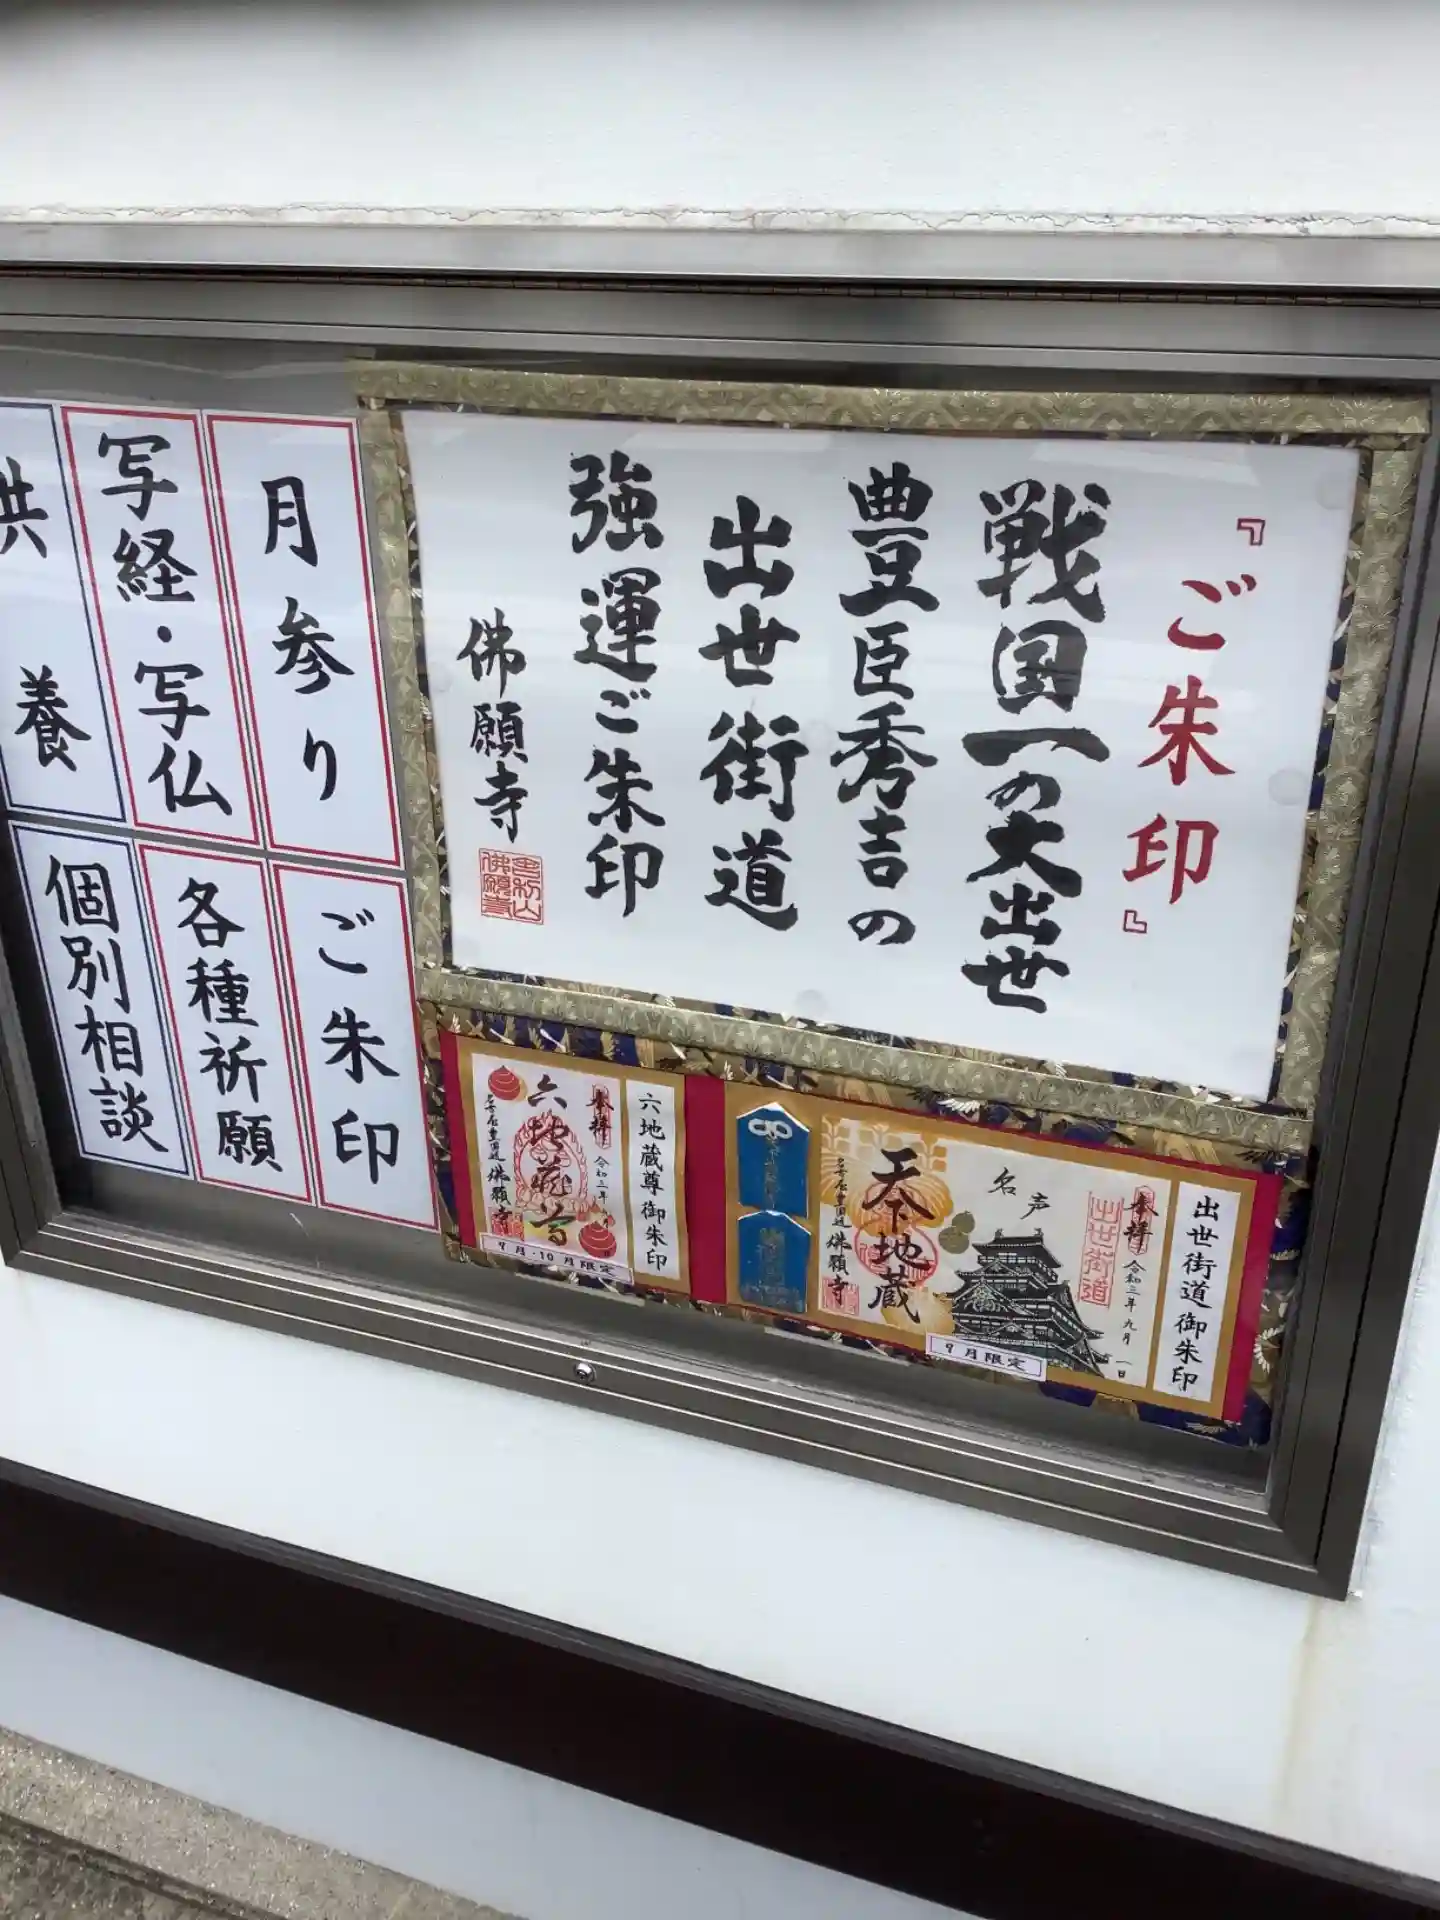 『ご朱印』
戦国一の大出世
豊臣秀吉の
出世街道
強運ご朱印
佛願寺
月参り
写経・写仏
供養
ご朱印
各種祈願
個別相談
出世街道御朱印
奉拝
令和三年九月一日
出世街道
名声
天下地蔵
佛願寺
9月限定
六地蔵尊御朱印
奉拝
令和三年
六地蔵尊
佛願寺
9月・10月限定